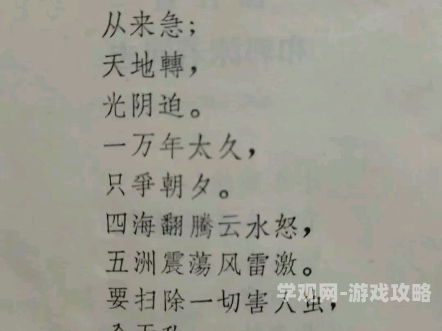 从来急；
天地轉，
光阴迫。
一万年太久，
只爭朝夕。
四海翻騰云水怒，
五洲震蕩风雷激。
要扫除一切害人虫，
学观网-游戏攻略